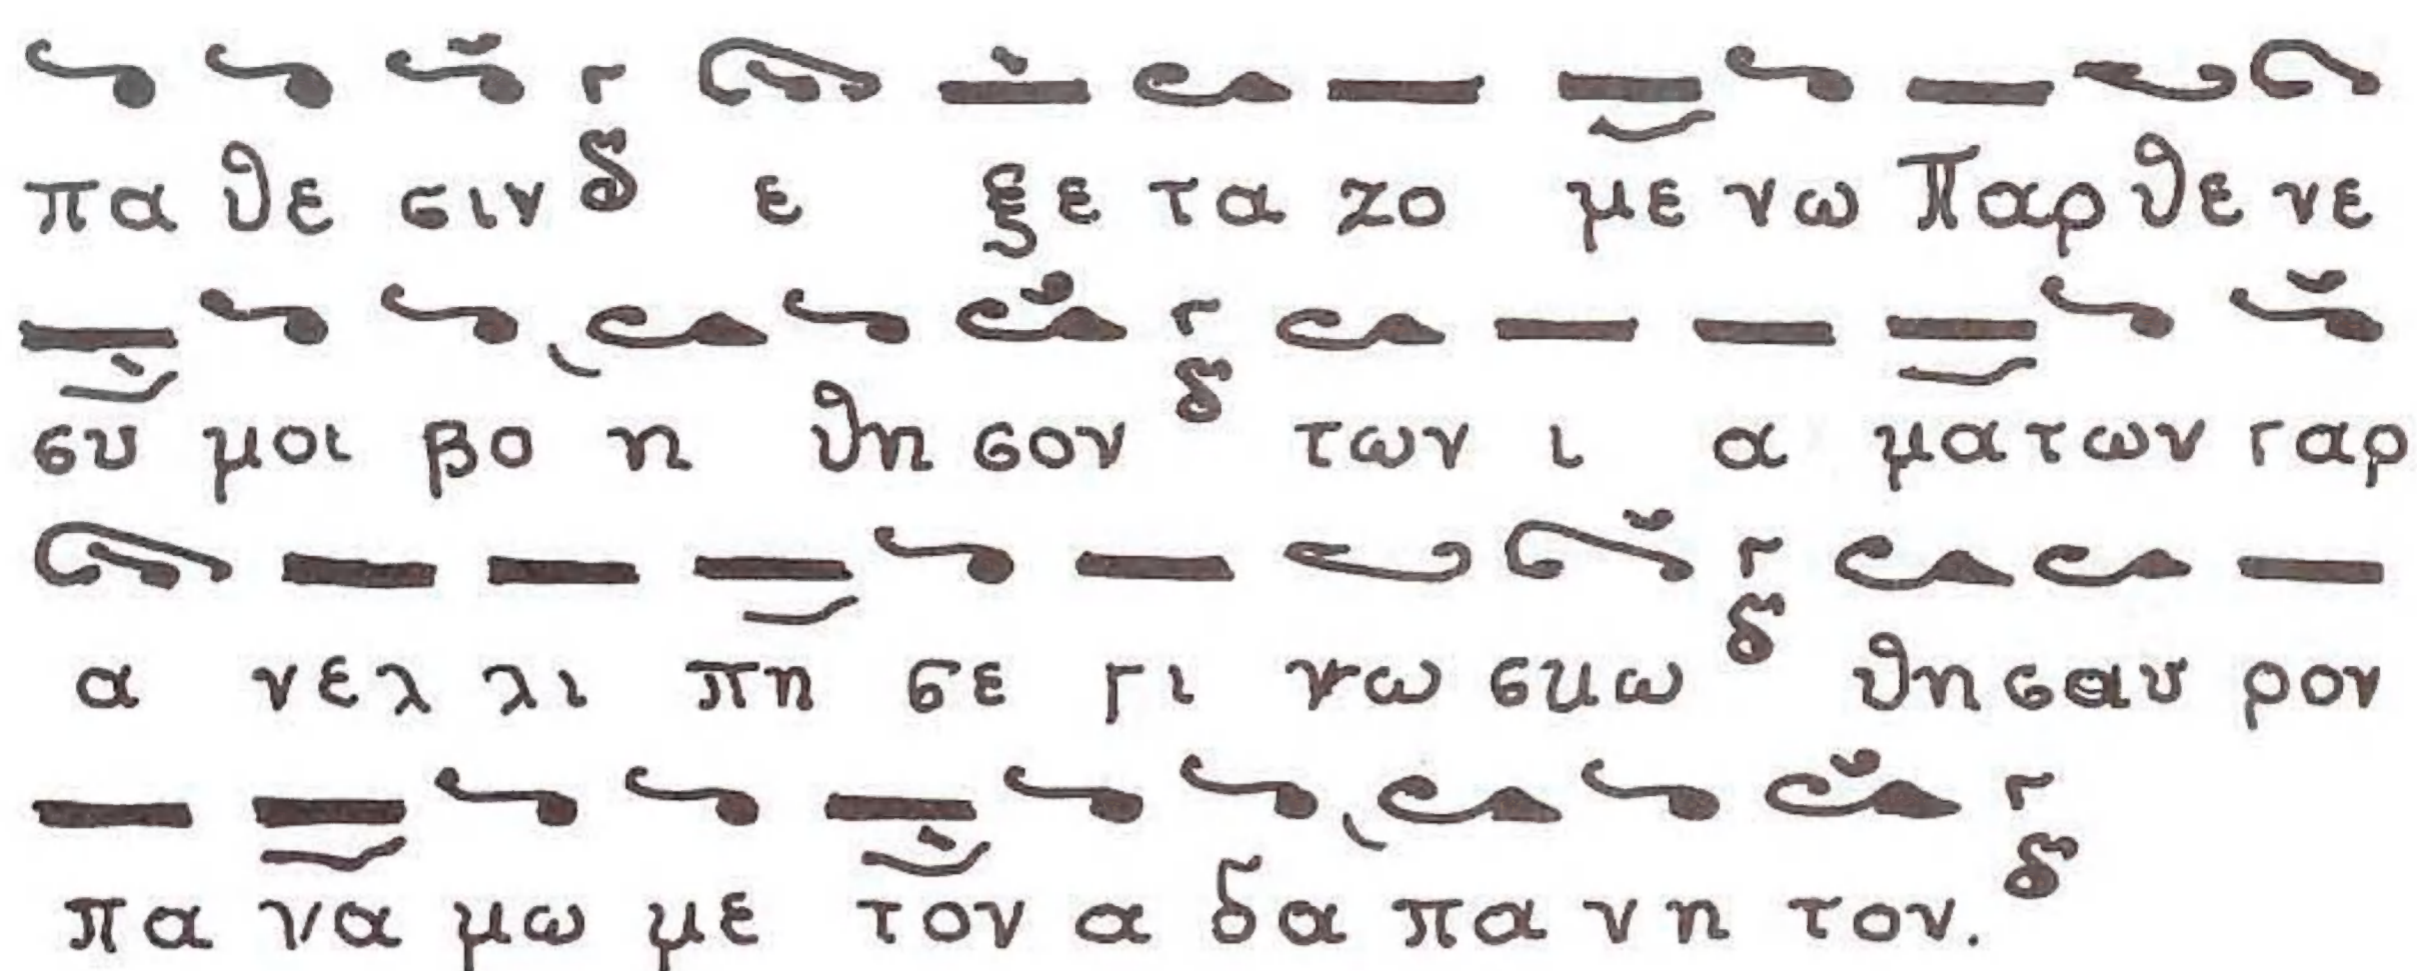 πα θε σιν δ ε ξε τα ζο με νω Παρ θε νε
συ μοι βο η θη σον δ των ι α μα των γαρ
α νελ λι πη σε γι νω σκω δ θη σαυ ρον
πα να μω με τον α δα πα νη τον. δ